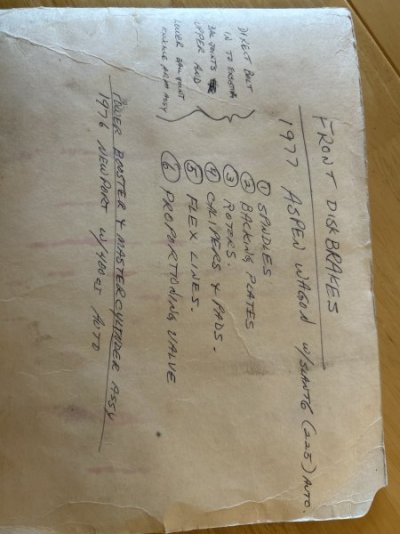 FRONT DISK BRAKES
1977 ASPEN WAGON W/SLANT6 (225) AUTO.
① SPINDLES
② BACKING PLATES
③ ROTORS.
④ CALIPERS & PADS.
⑤ FLEX LINES.
⑥ PROPORTIONING VALVE
DIRECT BOLT
IN TO EXISTING
BALL JOINTS
UPPER AND
LOWER BALL JOINT
ARM ASSY
POWER BOOSTER & MASTER CYLINDER ASSY
1976 NEWPORT W/400CI AUTO